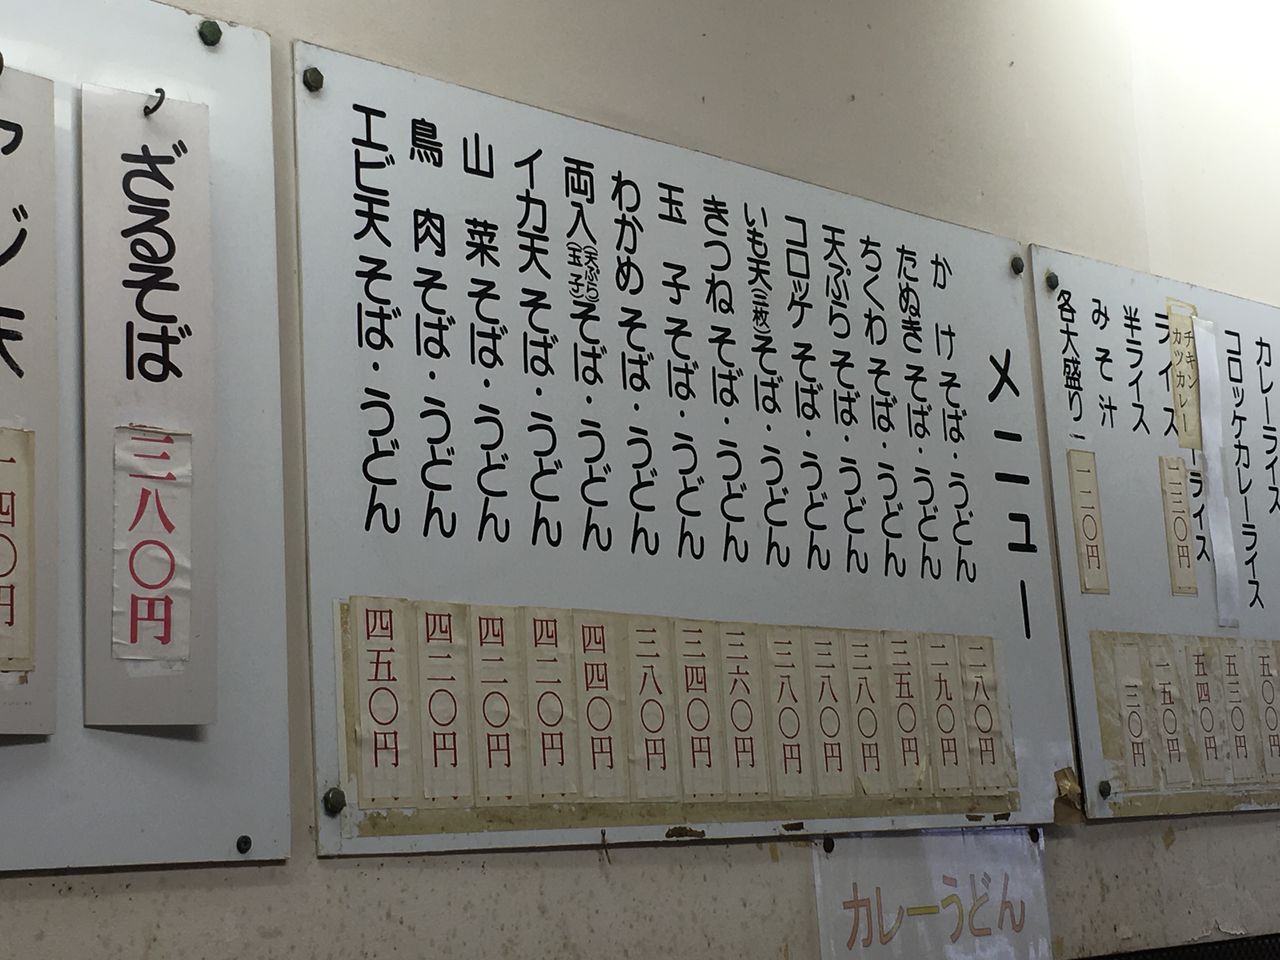 カレーライス 五〇〇円
コロッケカレーライス 五三〇円
チキン
カツカレー
ーライス 五四〇円
ライス 二三〇円
半ライス 一五〇円
みそ汁 三〇円
各大盛り 一二〇円
メニュー
かけそば・うどん 二八〇円
たぬきそば・うどん 二九〇円
ちくわそば・うどん 三五〇円
天ぷらそば・うどん 三八〇円
コロッケそば・うどん 三八〇円
いも天(三枚)そば・うどん 三八〇円
きつねそば・うどん 三六〇円
玉子そば・うどん 三四〇円
わかめそば・うどん 三八〇円
両入(天ぷら玉子)そば・うどん 四四〇円
イカ天そば・うどん 四二〇円
山菜そば・うどん 四二〇円
鳥肉そば・うどん 四二〇円
エビ天そば・うどん 四五〇円
カレーうどん
ざるそば 三八〇円
四〇円